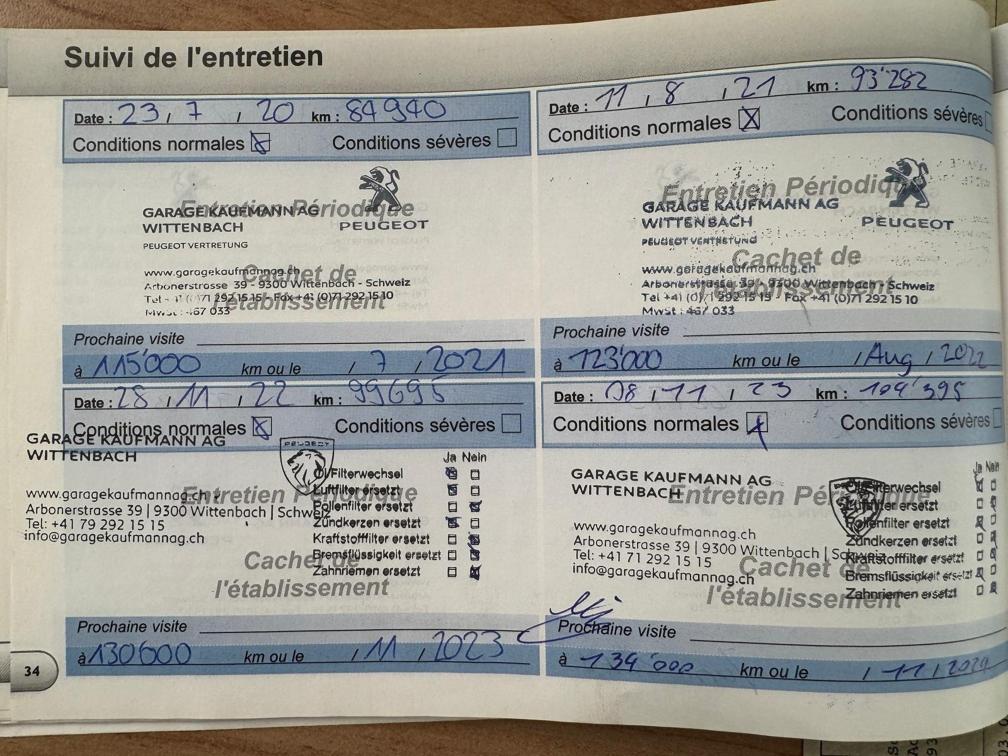 Suivi de l'entretien
Date : 23 / 7 / 20 km : 84940
Conditions normales Conditions sévères
Entretien Périodique
PEUGEOT
GARAGE KAUFMANN AG
WITTENBACH
PEUGEOT VERTRETUNG
Cachet de
l'établissement
www.garagekaufmannag.ch
Arbonerstrasse 39 - 9300 Wittenbach - Schweiz
Tel +41 (0)71 292 15 15 Fax +41 (0)71 292 15 10
MwSt : 467 033
Prochaine visite
à 115'000 km ou le / 7 / 2021
Date : 11 / 8 / 21 km : 93'282
Conditions normales Conditions sévères
Entretien Périodique
PEUGEOT
GARAGE KAUFMANN AG
WITTENBACH
PEUGEOT VERTRETUNG
Cachet de
l'établissement
www.garagekaufmannag.ch
Arbonerstrasse 39 - 9300 Wittenbach - Schweiz
Tel +41 (0)71 292 15 15 Fax +41 (0)71 292 15 10
MwSt : 467 033
Prochaine visite
à 123'000 km ou le / Aug / 2022
Date : 28 / 11 / 22 km : 99695
Conditions normales Conditions sévères
GARAGE KAUFMANN AG
WITTENBACH
PEUGEOT
www.garagekaufmannag.ch
Arbonerstrasse 39 | 9300 Wittenbach | Schweiz
Tel: +41 79 292 15 15
info@garagekaufmannag.ch
Entretien Périodique
Cachet de
l'établissement
Ja Nein
Öl/Filterwechsel
Luftfilter ersetzt
Pollenfilter ersetzt
Zündkerzen ersetzt
Kraftstofffilter ersetzt
Bremsflüssigkeit ersetzt
Zahnriemen ersetzt
Prochaine visite
à 130600 km ou le / 11 / 2023
Date : 08 / 11 / 23 km : 104'395
Conditions normales Conditions sévères
GARAGE KAUFMANN AG
WITTENBACH
www.garagekaufmannag.ch
Arbonerstrasse 39 | 9300 Wittenbach | Schweiz
Tel: +41 71 292 15 15
info@garagekaufmannag.ch
Entretien Périodique
Cachet de
l'établissement
Ja Nein
Öl/Filterwechsel
Luftfilter ersetzt
Pollenfilter ersetzt
Zündkerzen ersetzt
Kraftstofffilter ersetzt
Bremsflüssigkeit ersetzt
Zahnriemen ersetzt
Prochaine visite
à 134'000 km ou le / 11 / 2024
34